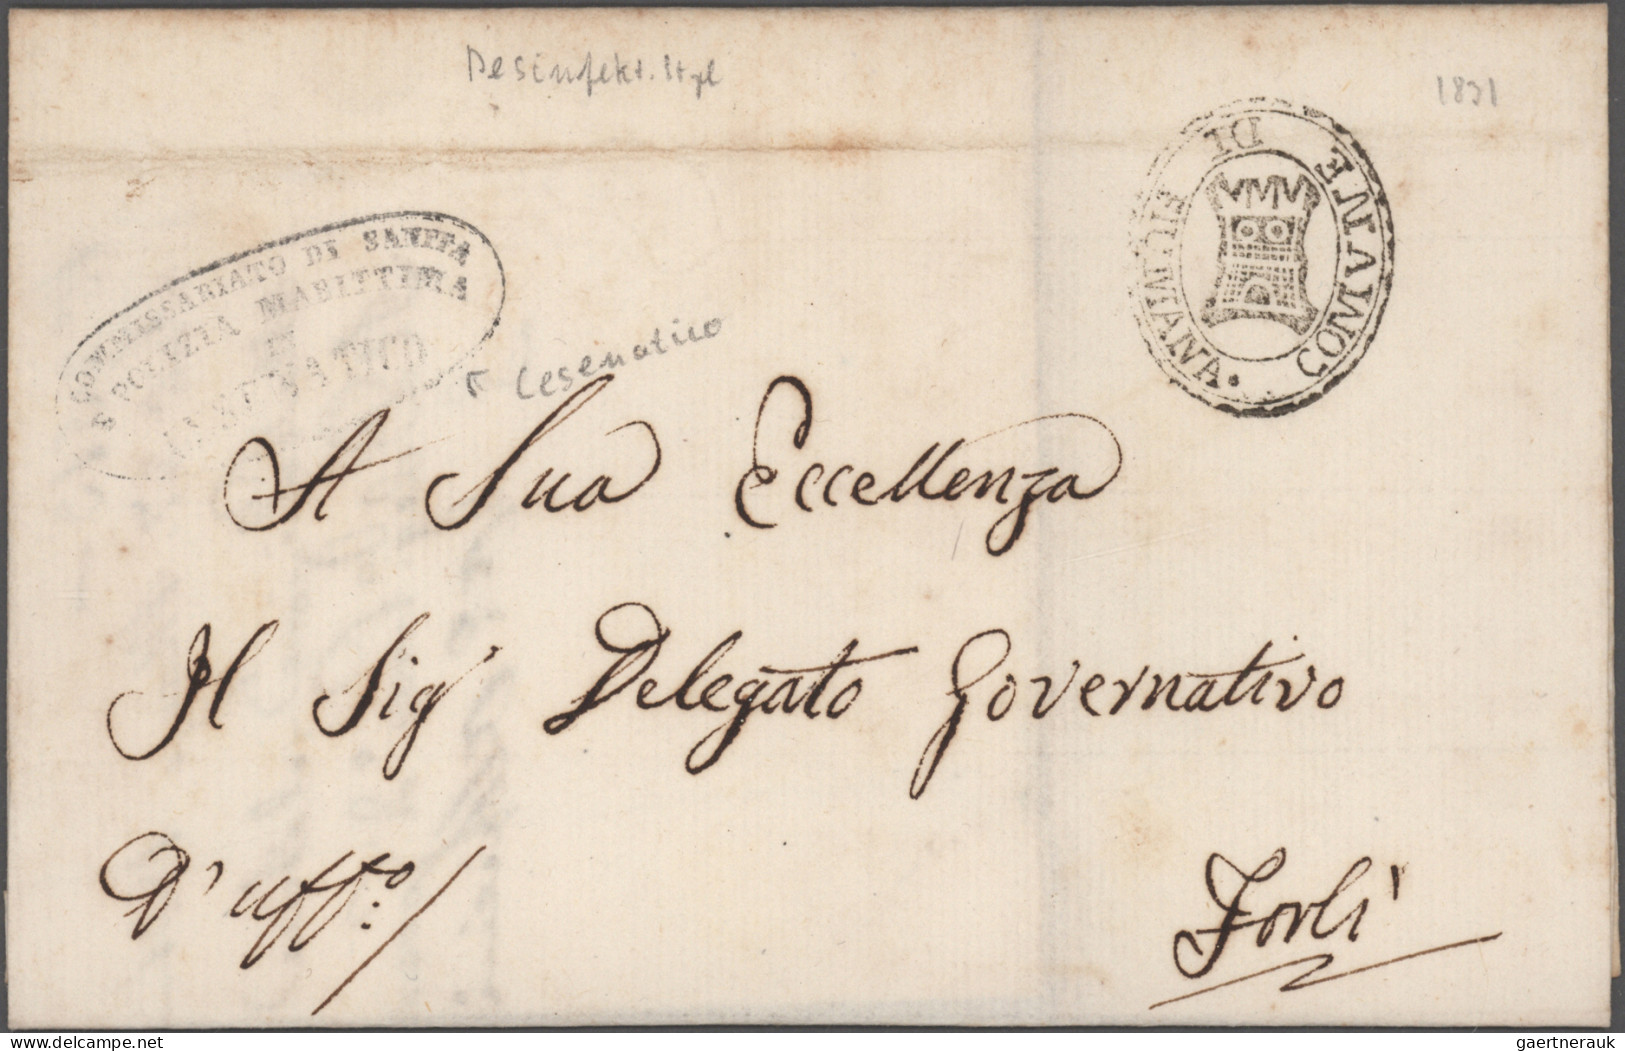 Desinfekt. Stpl
1831
COMUNE DI FIUMANA.
COMMISSARIATO DI SANITA
E POLIZIA MARITTIMA
IN
CESENATICO
Cesenatico
A Sua Eccellenza
Il Sig.r Delegato Governativo
D'uff.o:/
Forlì
gaertnerauk